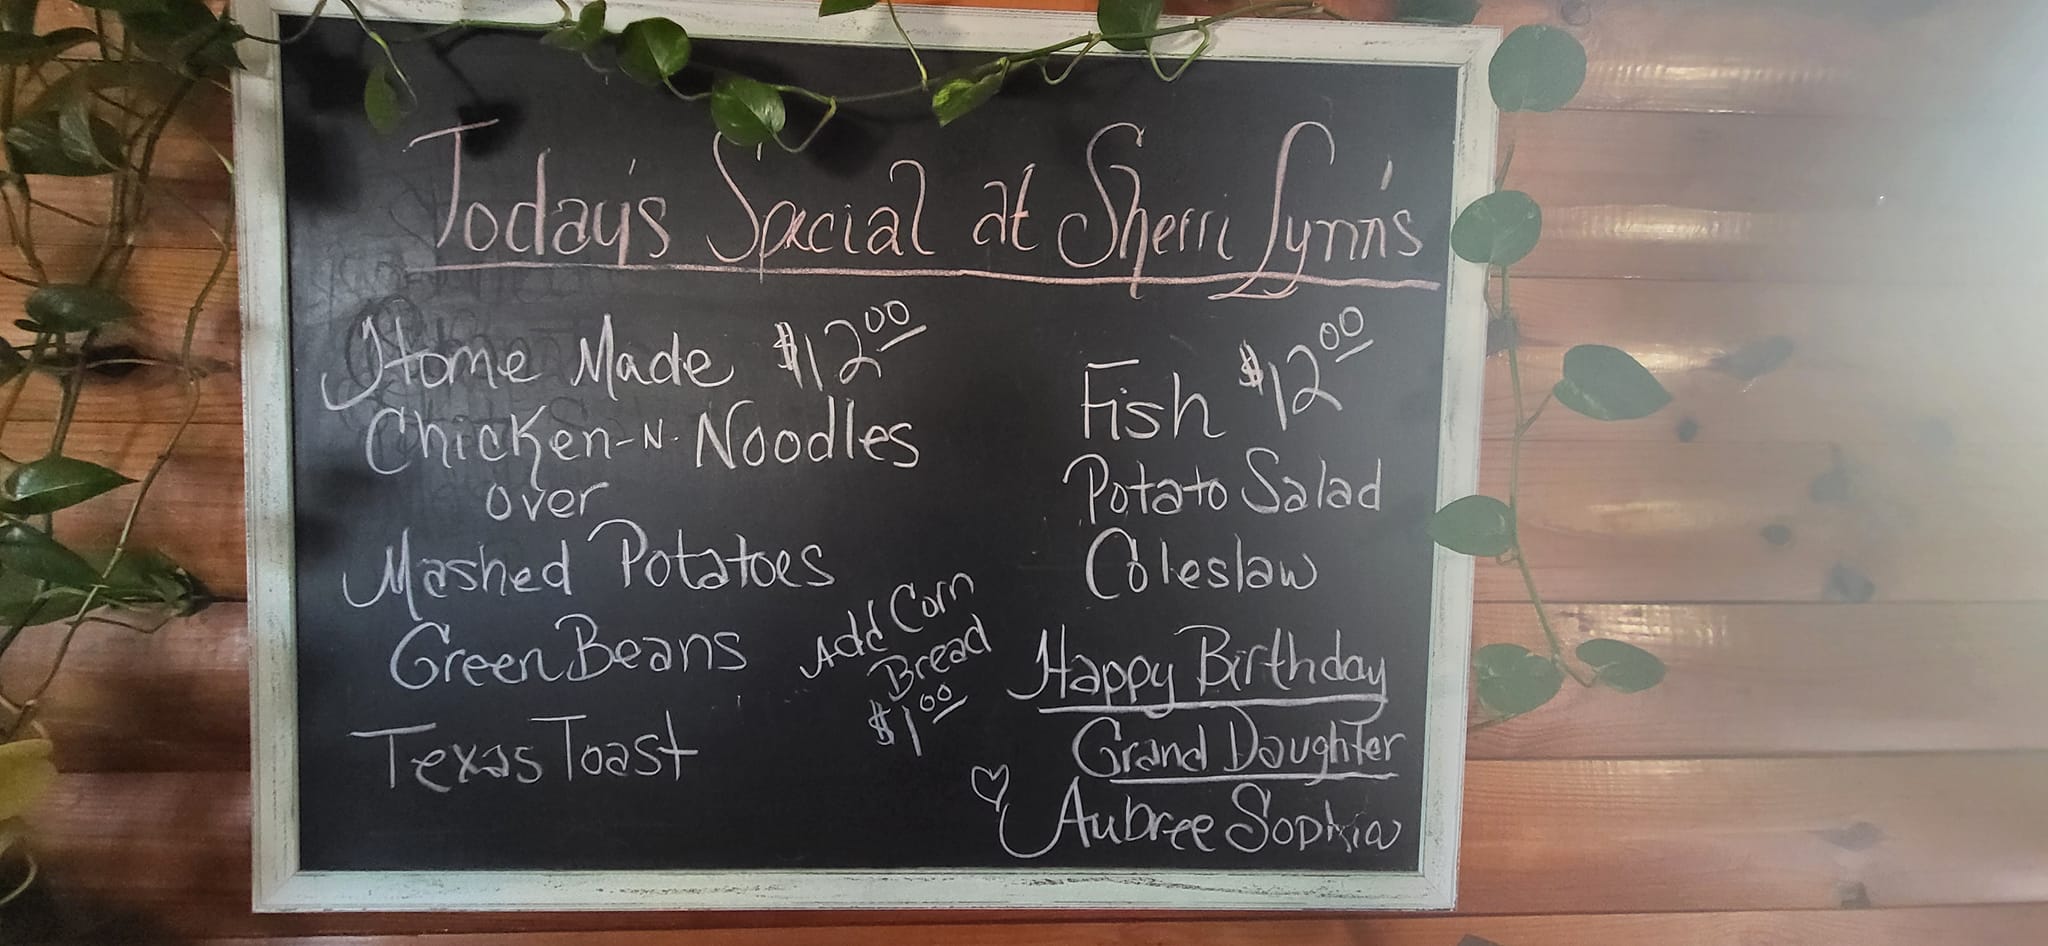 Today's Special at Sherri Lynn's
Home Made $12.00
Chicken-N-Noodles
over
Mashed Potatoes
Green Beans
Texas Toast
Add Corn
Bread
$1.00
Fish $12.00
Potato Salad
Coleslaw
Happy Birthday
Grand Daughter
Aubree Sophia